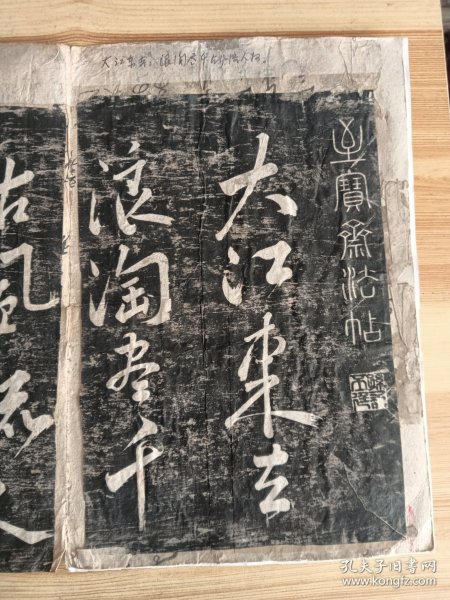 大江东去，浪淘尽千古风流人物。
至寶齋法帖
大江東去
浪淘盡千
古風流人
孔夫子旧书网
www.kongfz.com